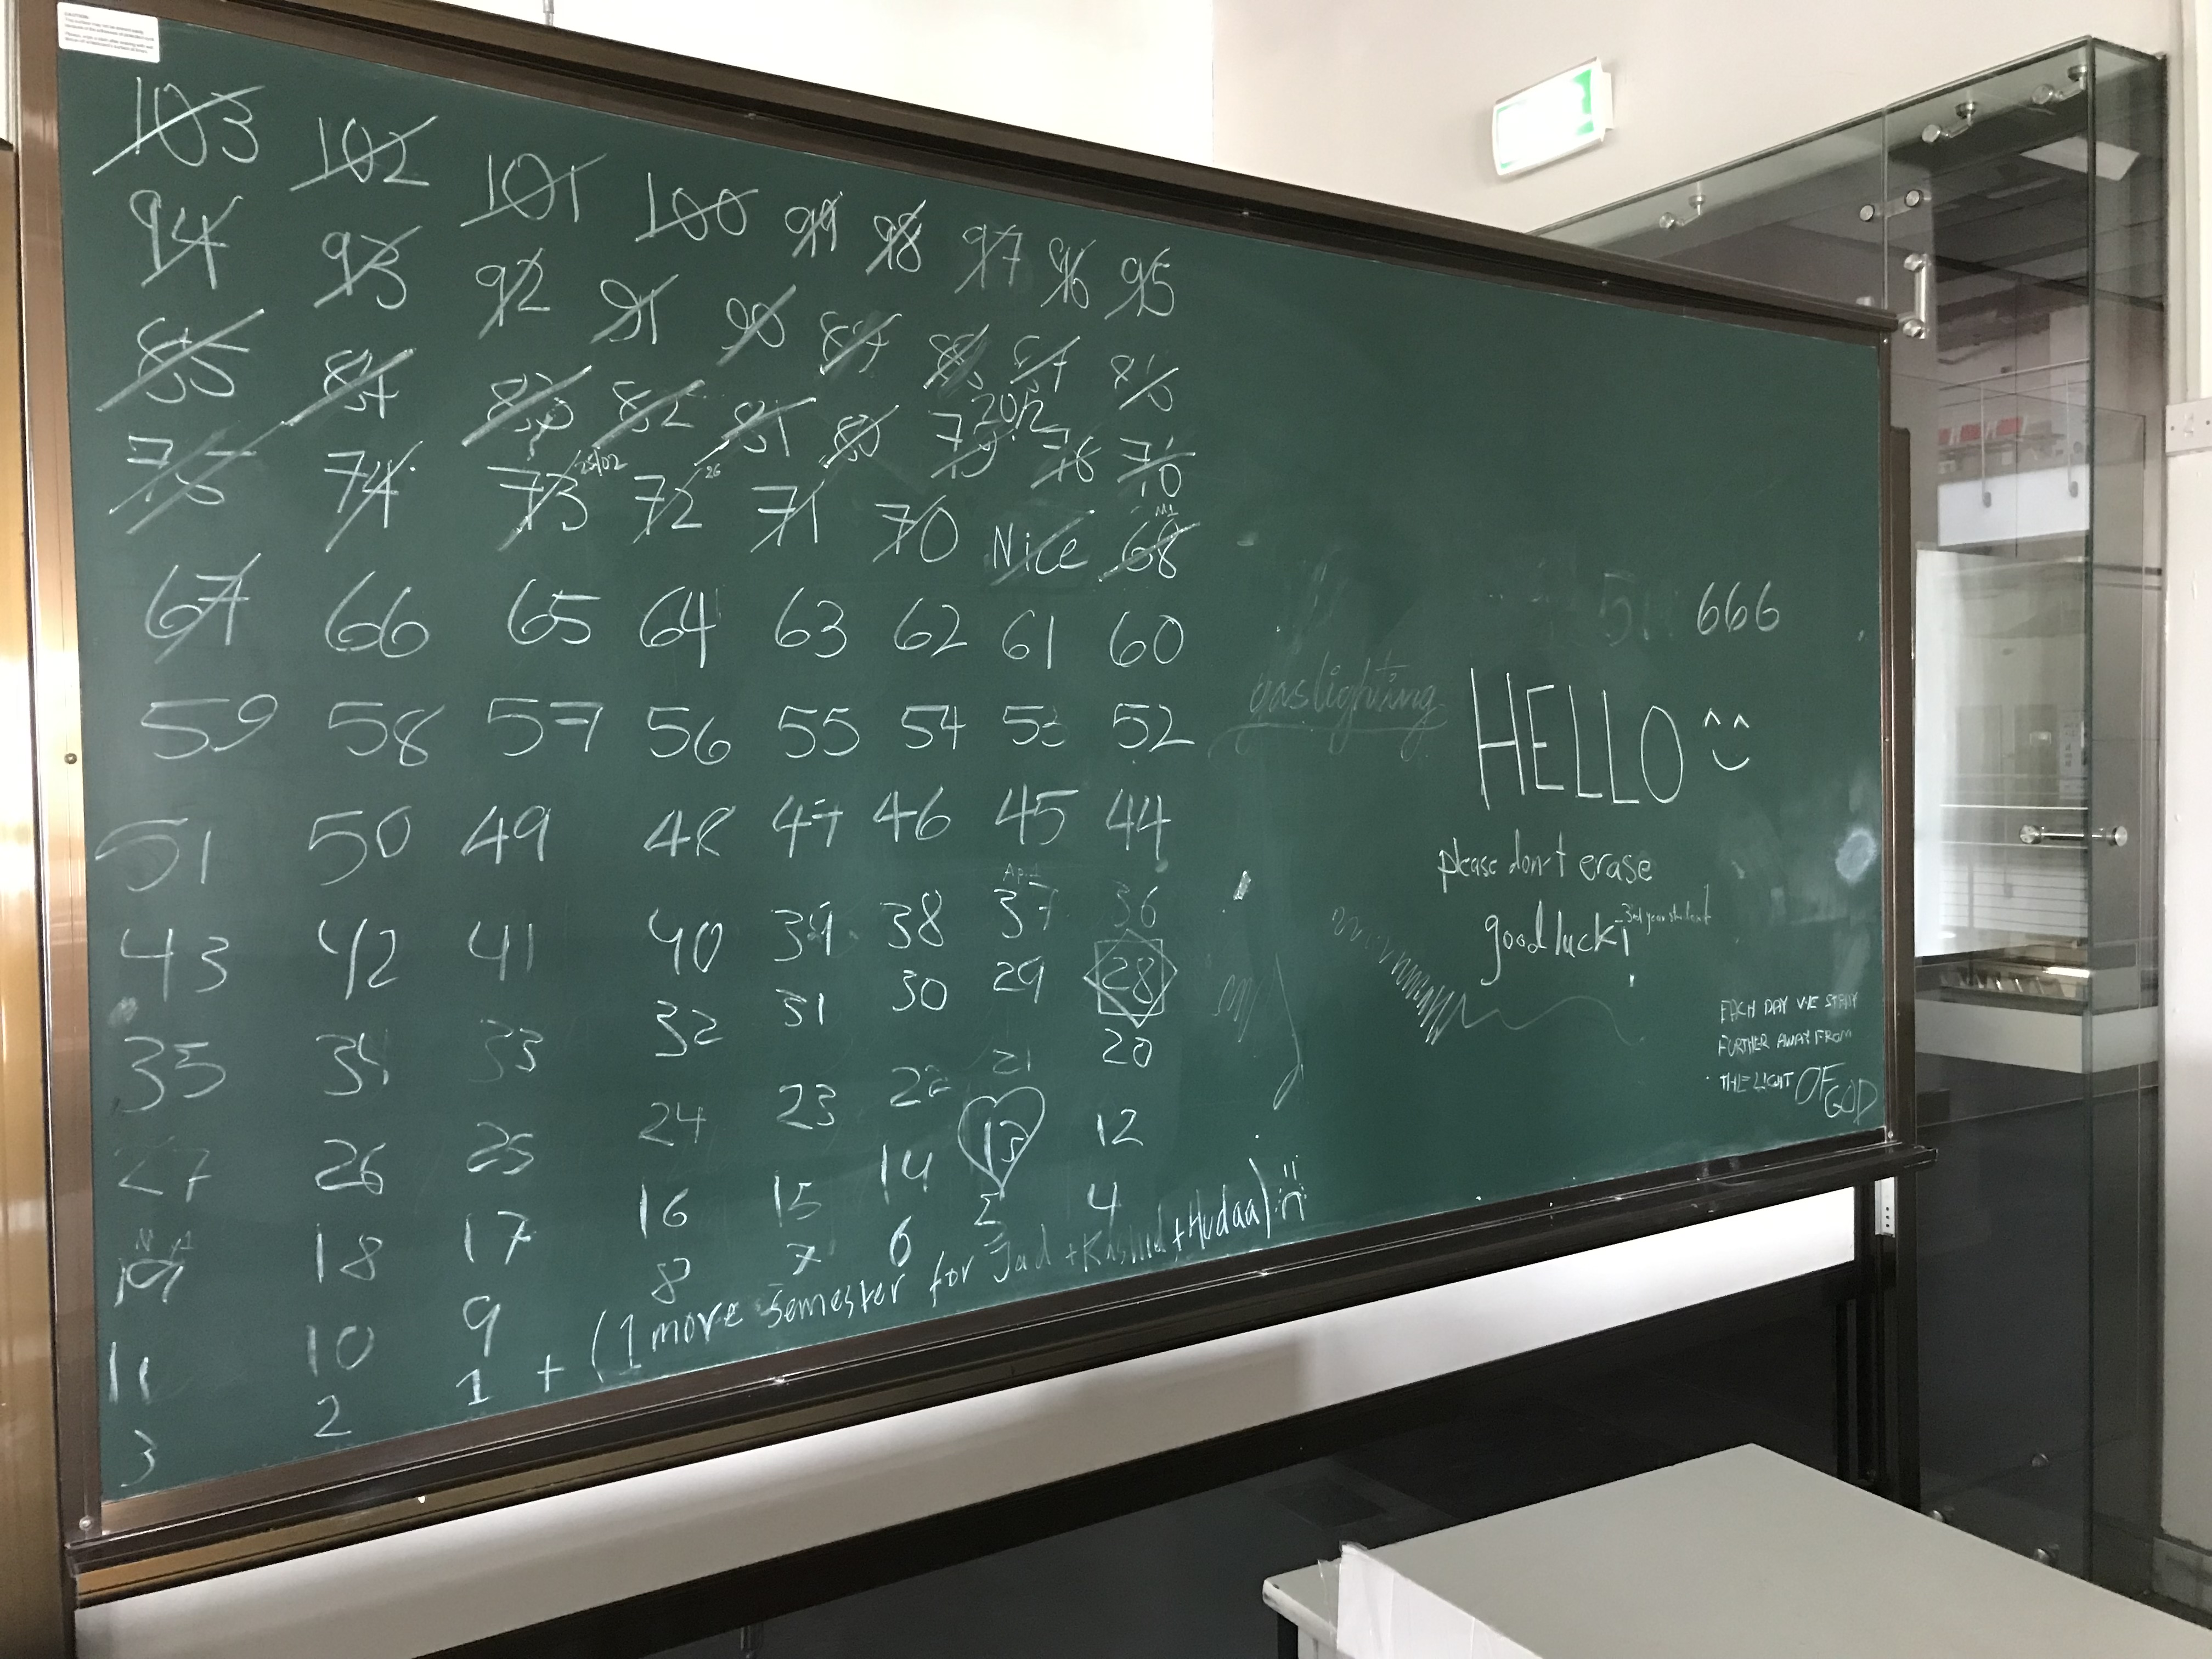 CAUTION:
103 102 101 100 99 98 97 96 95
94 93 92 91 90 89 88 87 86
85 84 83 82 81 80 79 78 76
20/2
75 74 73 72 71 70 Nice 68
25/02 26
67 66 65 64 63 62 61 60
59 58 57 56 55 54 53 52
51 50 49 48 47 46 45 44
43 42 41 40 39 38 37 36
35 34 33 32 31 30 29 28
27 26 25 24 23 22 21 20
19 18 17 16 15 14 13 12
11 10 9 8 7 6 5 4
3 2 1 + (1 more semester for Jad + Rashid + Hudaa)
666
gaslighting
HELLO ^^
please don't erase
good luck! -3rd year student
EACH DAY WE STRAY
FURTHER AWAY FROM
THE LIGHT OF GOD